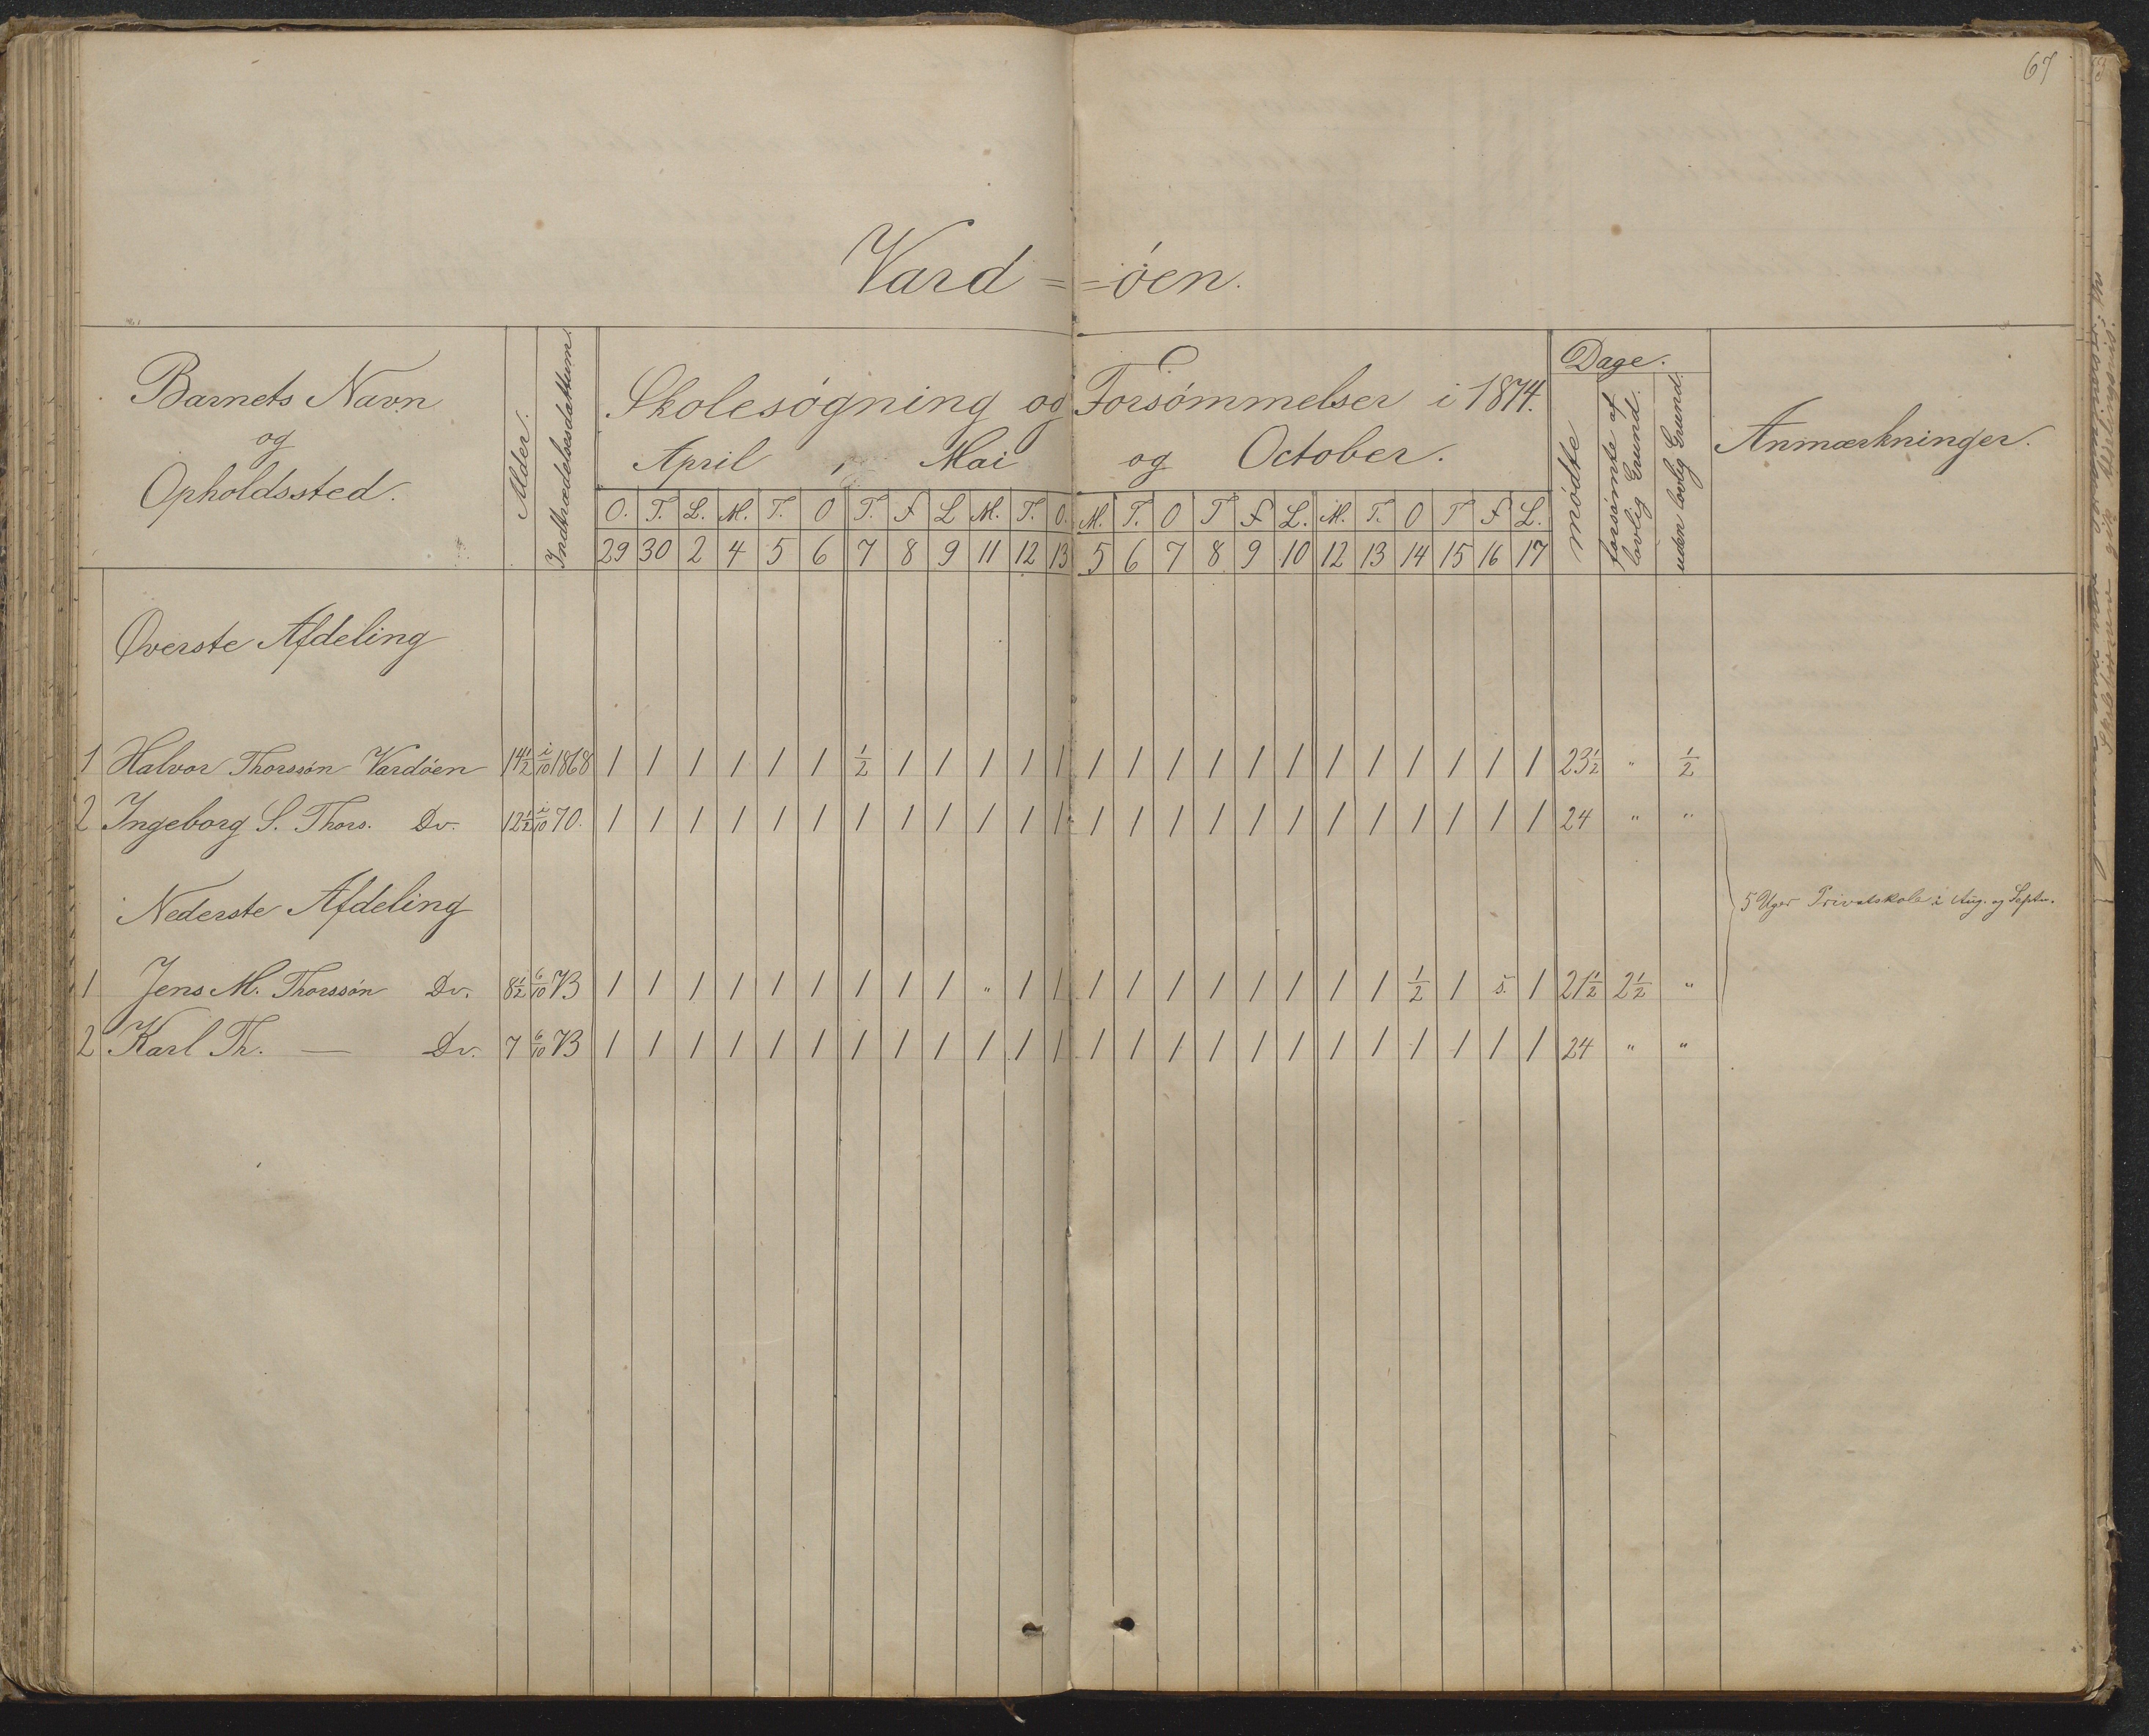 67
Vard = = öen.
Barnets Navn
og
Opholdssted.
Alder.
Indtrædelsesdattum.
Skolesøgning og Forsømmelser i 1874.
April , Mai og October.
O. T. L. M. T. O T. F L M. T. O. M. T. O T F L. M. T. O T F L.
29 30 2 4 5 6 7 8 9 11 12 13 5 6 7 8 9 10 12 13 14 15 16 17
Dage.
mødte
forsømte af lovlig Grund.
uden lovlig Grund.
Anmærkninger.
Øverste Afdeling
1 Halvor Thorssøn Vardöen 14½ 1/10 1868 1 1 1 1 1 1 ½ 1 1 1 1 1 1 1 1 1 1 1 1 1 1 1 1 1 23½ " ½
2 Ingeborg S. Thors. Do. 12½ 1/10 70. 1 1 1 1 1 1 1 1 1 1 1 1 1 1 1 1 1 1 1 1 1 1 1 1 24 " "
Nederste Afdeling
5 Uger Privatskole i Aug. og Septr.
1 Jens M. Thorssøn Do. 8½ 6/10 73 1 1 1 1 1 1 1 1 1 " 1 1 1 1 1 1 1 1 1 1 ½ 1 s. 1 21½ 2½ "
2 Karl Th. — Do. 7 6/10 73 1 1 1 1 1 1 1 1 1 1 1 1 1 1 1 1 1 1 1 1 1 1 1 1 24 " "